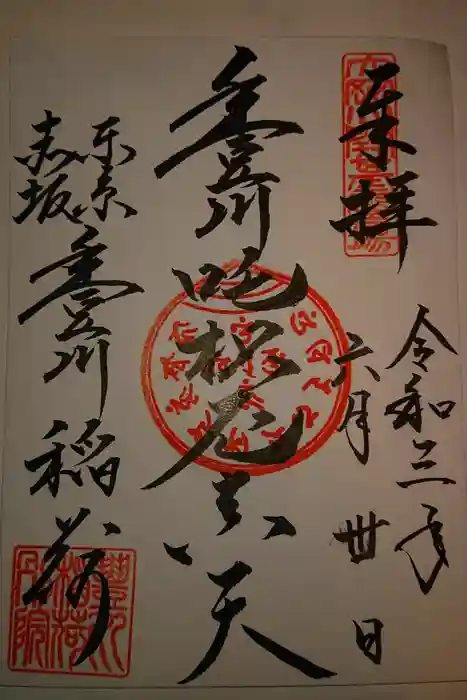 奉拝
令和三年
六月丗日
豊川吒枳尼真天
東京
赤坂
豊川稲荷
豊川
稲荷
別院